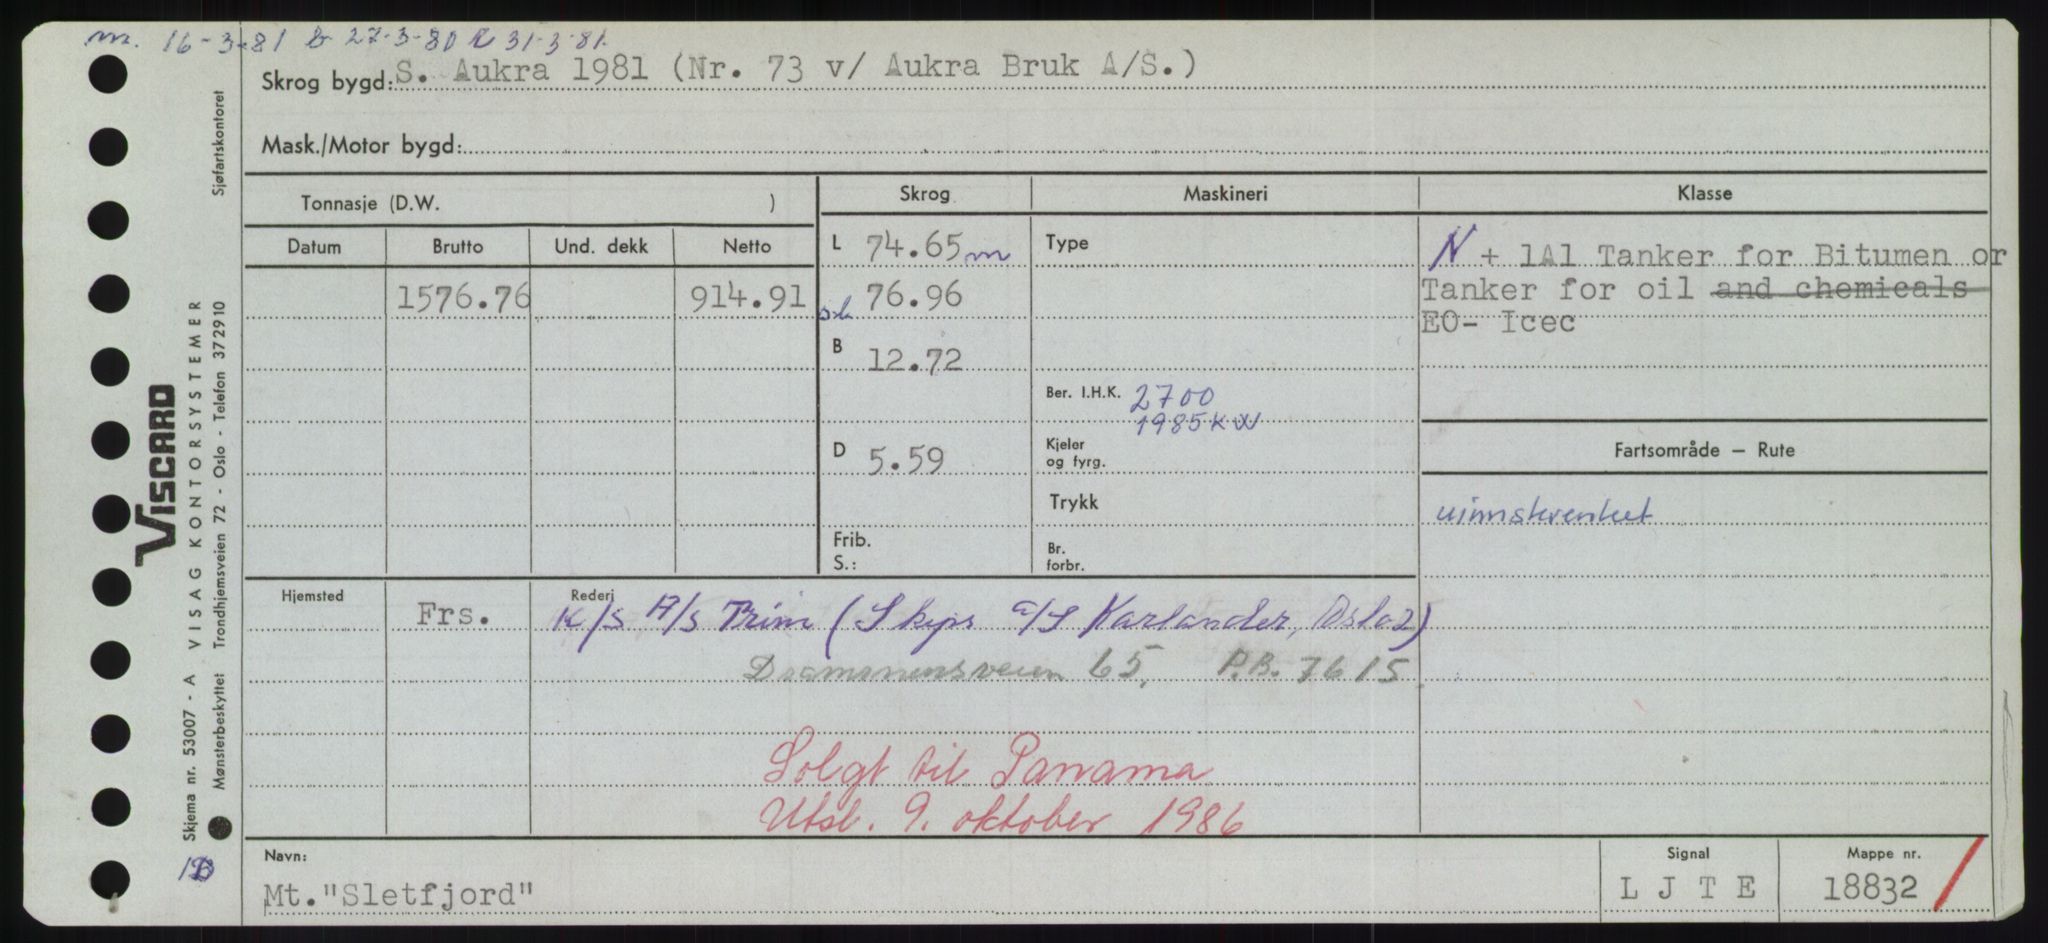 m. 16-3-81 b 27-3-80 R 31-3-81.
Skrog bygd: S. Aukra 1981 (Nr. 73 v/ Aukra Bruk A/S.)
Mask./Motor bygd:
Tonnasje (D.W. )
Skrog
Maskineri
Klasse
Datum Brutto Und. dekk Netto
1576.76 914.91
L 74.65 m
76.96
B 12.72
D 5.59
Frib.
S.:
Type
Ber. I.H.K. 2700
1985 KW
Kjeler
og fyrg.
Trykk
Br.
forbr.
N + 1A1 Tanker for Bitumen or
Tanker for oil and chemicals
EO- Icec
Fartsområde – Rute
uinnskrenket
Hjemsted
Frs.
Rederi
K/S A/S Trim (Skips a/S Karlander, Oslo 2)
Drammensveien 65. P.B. 7615.
Solgt til Panama
Utsl. 9. oktober 1986
Navn:
Mt. "Sletfjord"
Signal
L J T E
Mappe nr.
18832
VISCARD
Skjema nr. 53007 - A VISAG KONTORSYSTEMER
Mønsterbeskyttet Trondhjemsveien 72 - Oslo - Telefon 372910 Sjøfartskontoret